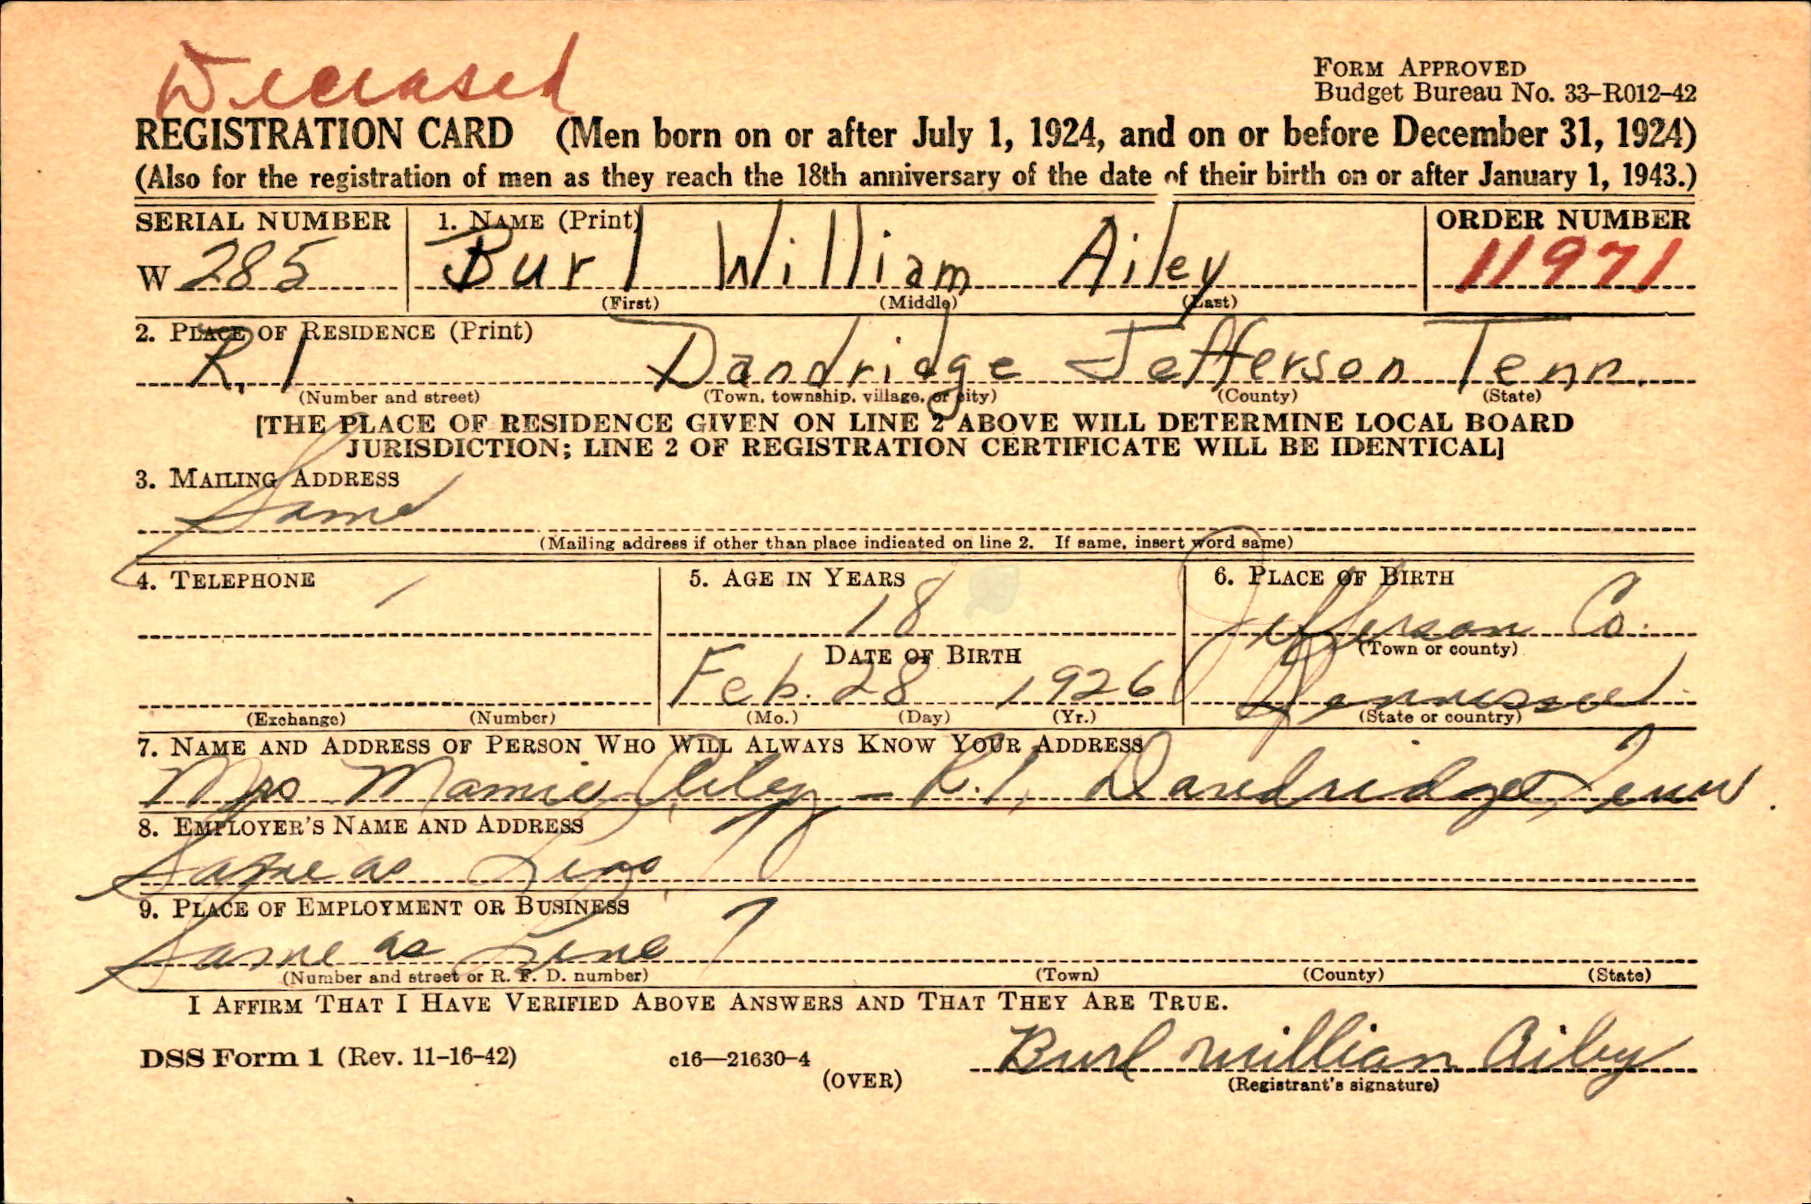 Deceased
FORM APPROVED
Budget Bureau No. 33-R012-42
REGISTRATION CARD (Men born on or after July 1, 1924, and on or before December 31, 1924)
(Also for the registration of men as they reach the 18th anniversary of the date of their birth on or after January 1, 1943.)
SERIAL NUMBER 1. NAME (Print) ORDER NUMBER
W 285 Burl William Ailey 11971
(First) (Middle) (Last)
2. PLACE OF RESIDENCE (Print)
R. 1 Dandridge Jefferson Tenn.
(Number and street) (Town, township, village, or city) (County) (State)
[THE PLACE OF RESIDENCE GIVEN ON LINE 2 ABOVE WILL DETERMINE LOCAL BOARD
JURISDICTION; LINE 2 OF REGISTRATION CERTIFICATE WILL BE IDENTICAL]
3. MAILING ADDRESS
Same
(Mailing address if other than place indicated on line 2. If same, insert word same)
4. TELEPHONE 5. AGE IN YEARS 6. PLACE OF BIRTH
18 Jefferson Co.
DATE OF BIRTH (Town or county)
Feb. 28 1926 Tennessee
(Exchange) (Number) (Mo.) (Day) (Yr.) (State or country)
7. NAME AND ADDRESS OF PERSON WHO WILL ALWAYS KNOW YOUR ADDRESS
Mrs Mamie Ailey - R.1, Dandridge, Tenn.
8. EMPLOYER'S NAME AND ADDRESS
Same as Line 7
9. PLACE OF EMPLOYMENT OR BUSINESS
Same as Line 7
(Number and street or R. F. D. number) (Town) (County) (State)
I AFFIRM THAT I HAVE VERIFIED ABOVE ANSWERS AND THAT THEY ARE TRUE.
DSS Form 1 (Rev. 11-16-42) c16—21630-4 Burl William Ailey
(OVER) (Registrant's signature)